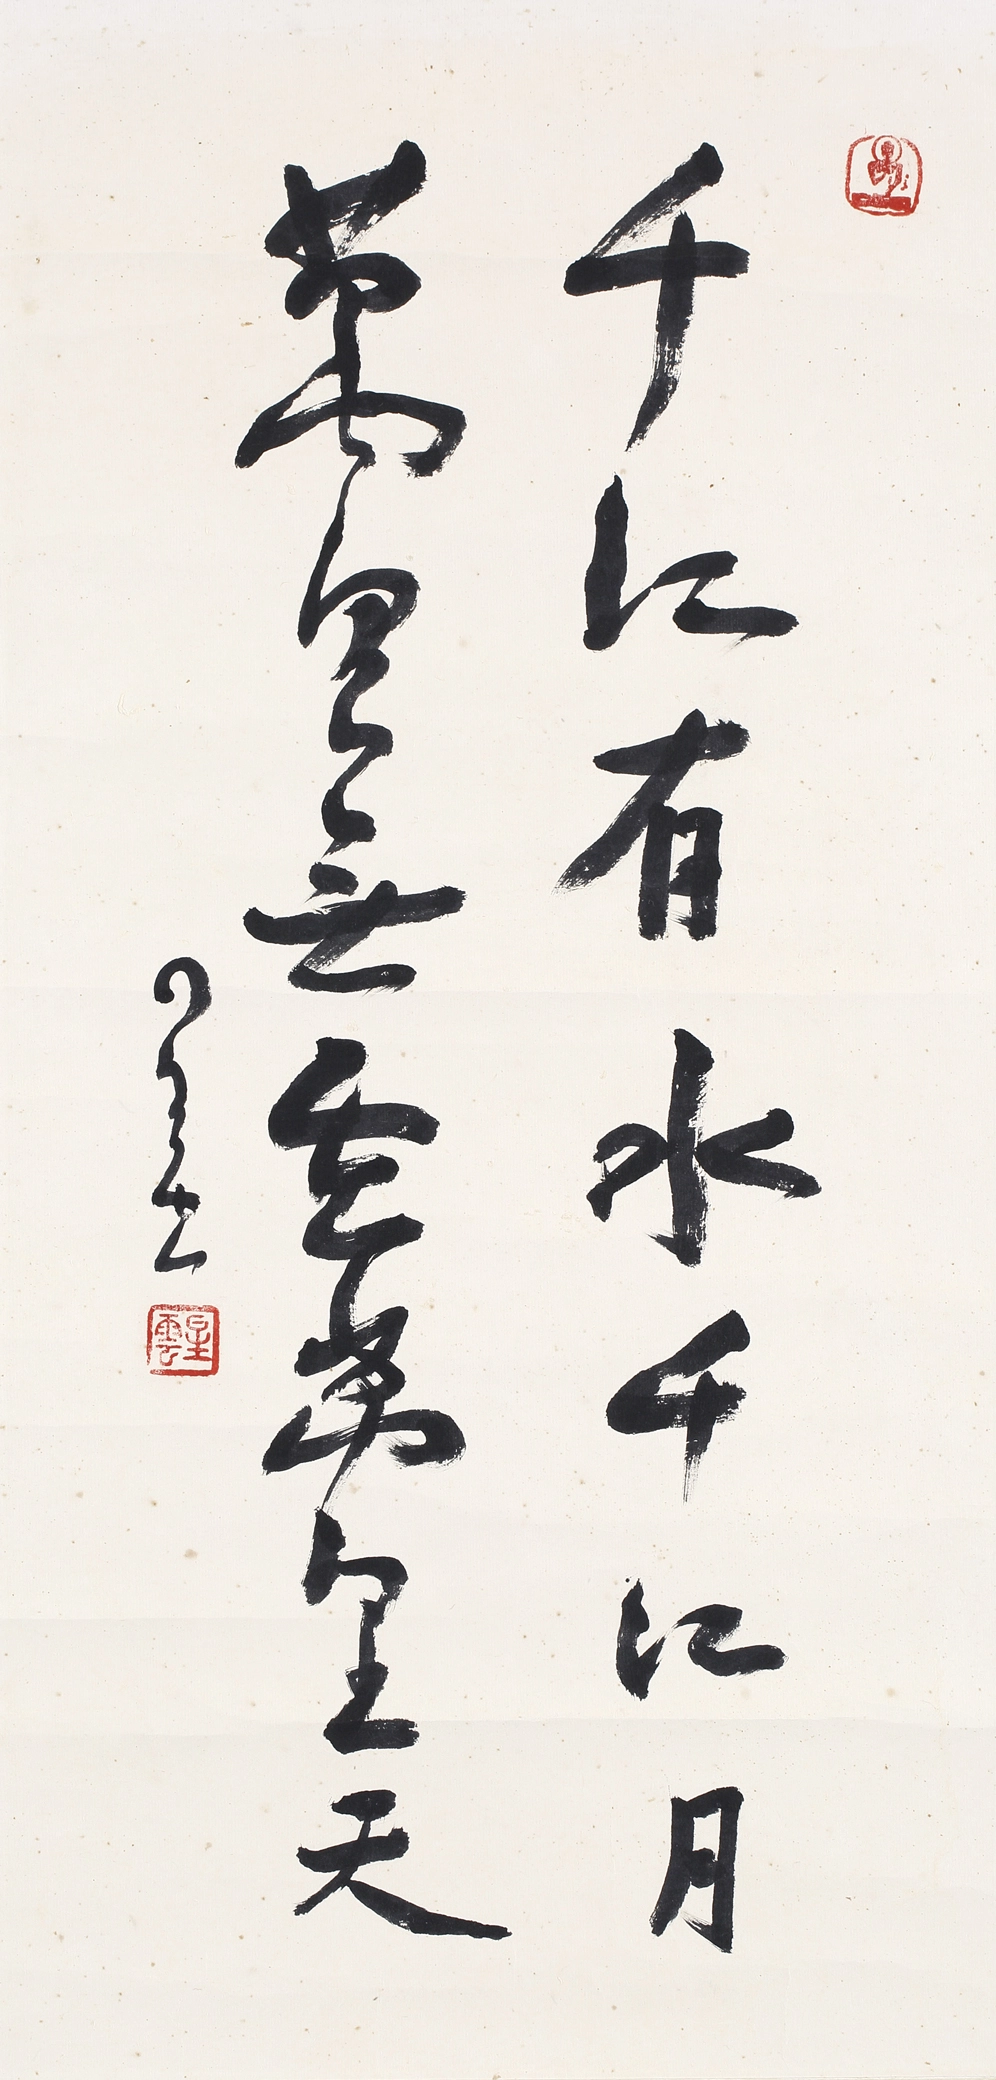 千江有水千江月
萬里無雲萬里天
星雲